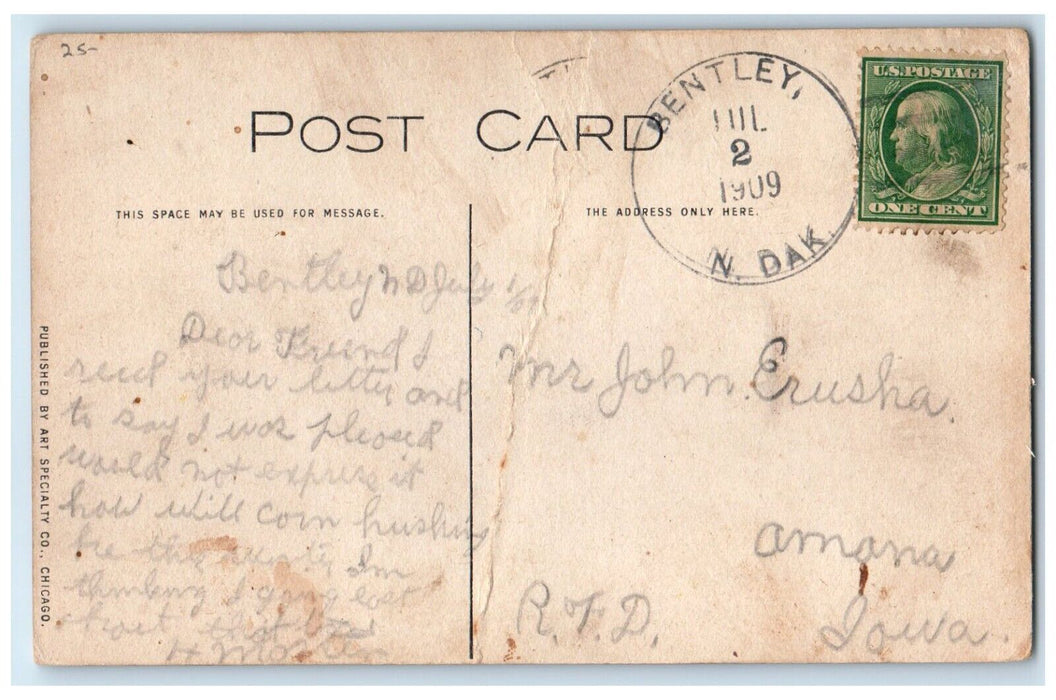 25-
POST CARD
BENTLEY,
JUL
2
1909
N. DAK.
U.S. POSTAGE
ONE CENT
THIS SPACE MAY BE USED FOR MESSAGE.
THE ADDRESS ONLY HERE.
PUBLISHED BY ART SPECIALTY CO., CHICAGO.
Bentley N D July 1/09
Dear Freind I
recd your letter and
to say I was pleased
would not express it
how will corn husking
be this Im
thinking I going east
about that
Mr John Erusha.
Amana
R.F.D. Iowa.